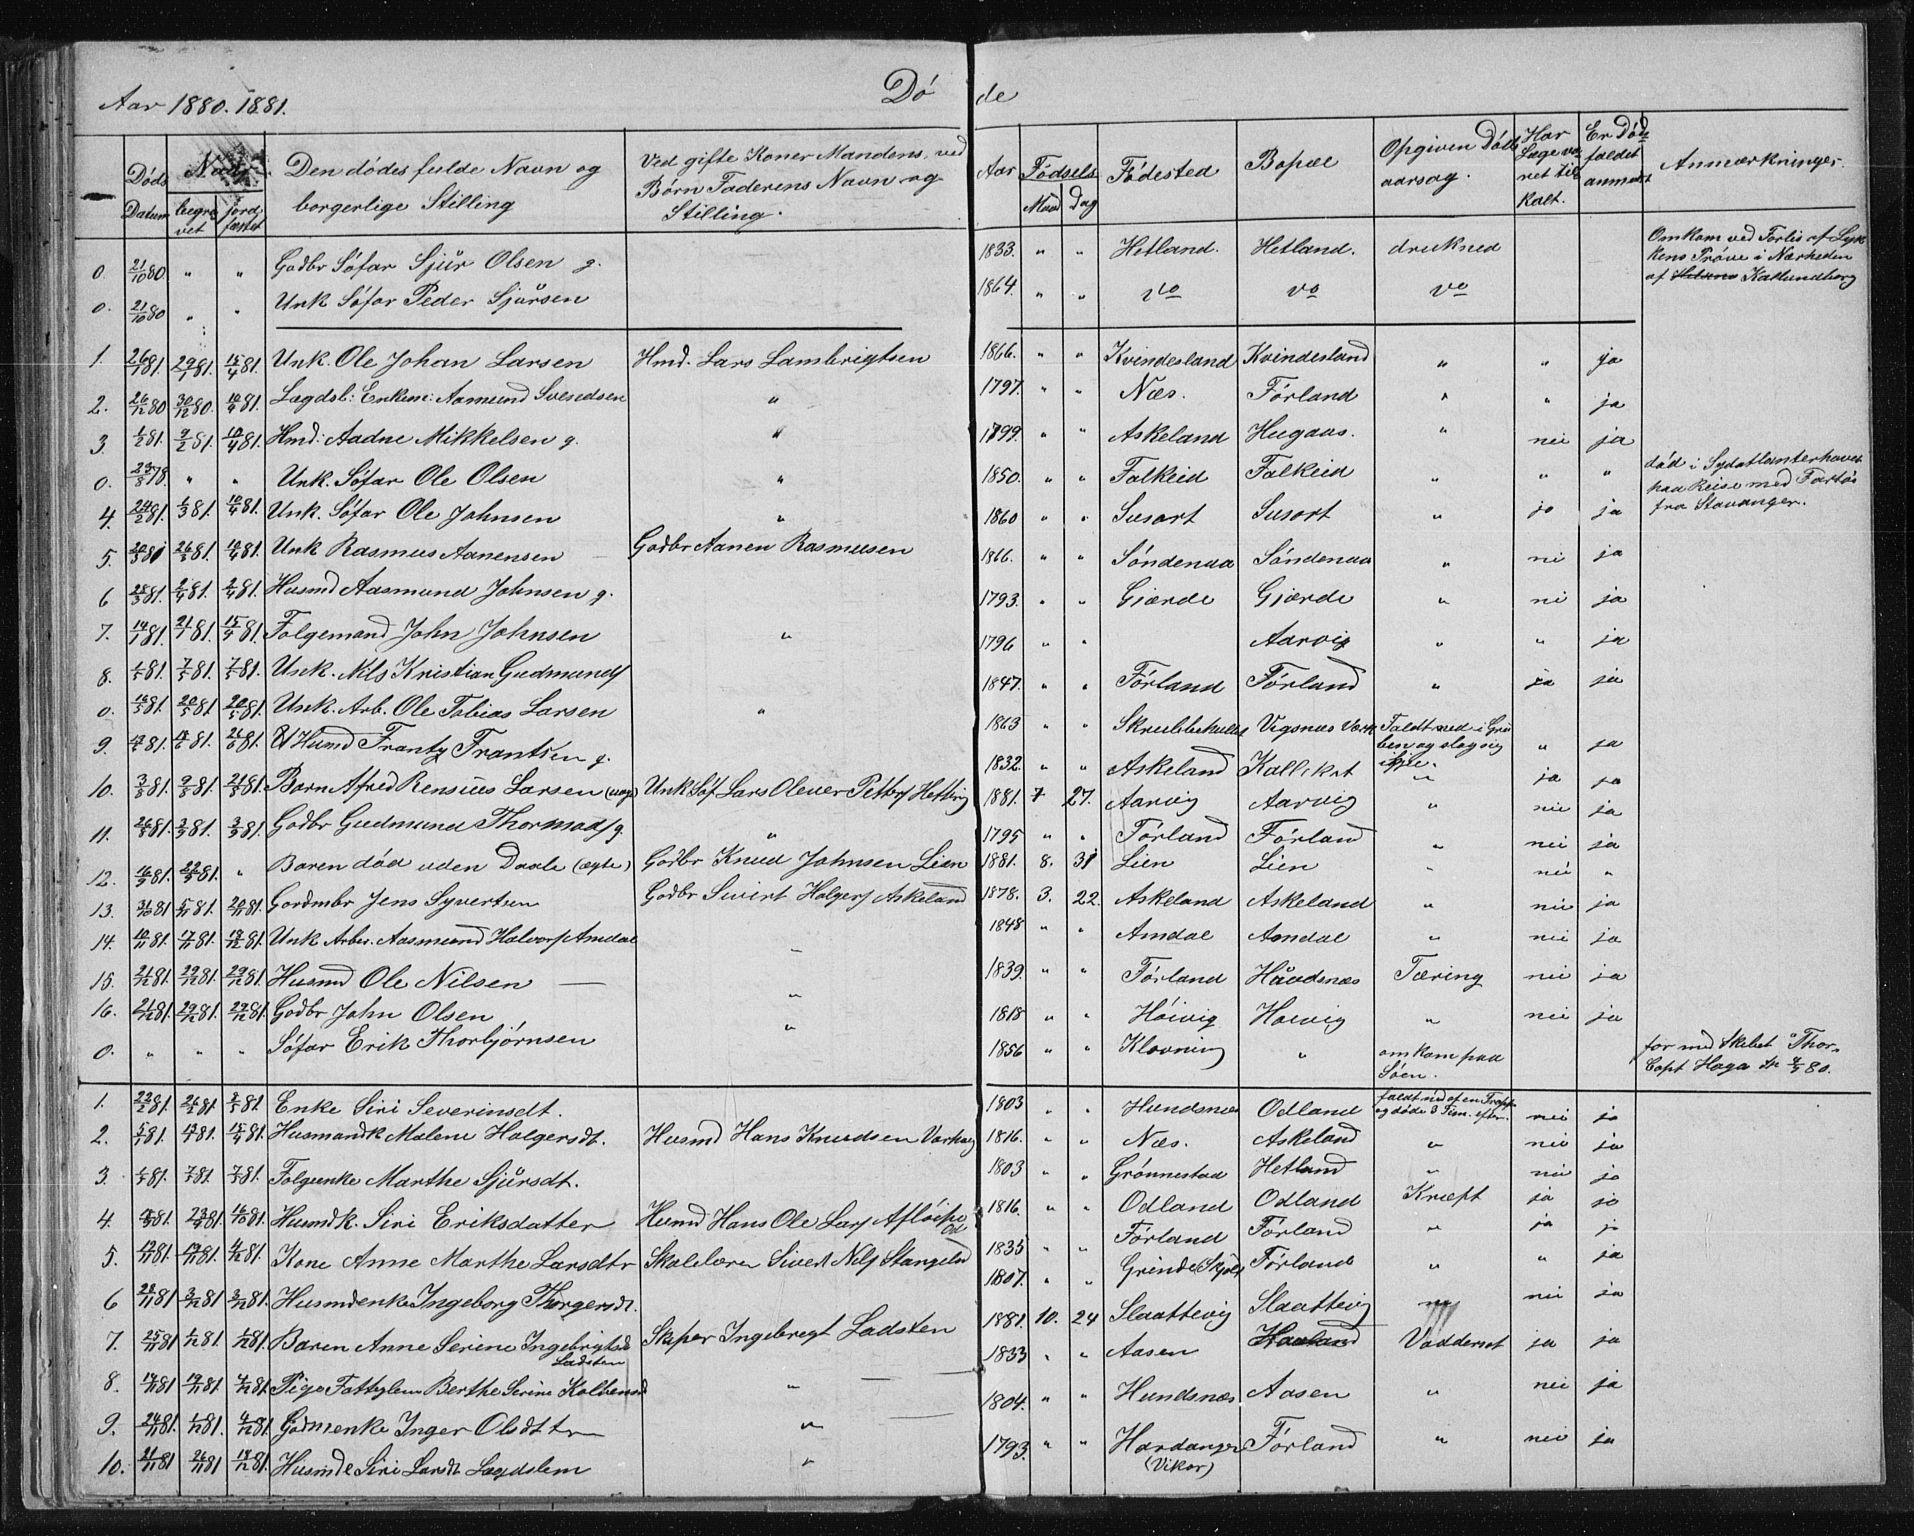 Aar 1880. 1881. Dø de
Døds Datum begravet jordfæstet Den dødes fulde Navn og borgerlige Stilling Ved gifte Koner Mandens, ved Børn Faderens Navn og Stilling. Aar Fødsels Maad Dag Fødested Bopæl Opgiven Dødsaarsag. Har Læge været tilkalt. Er Dødsfaldet anmeldt Anmærkninger.
0. 21/10 80 " " Gadbr Søfar Sjur Olsen g. 1833. " " Hetland. Hetland. drukned Omkom ved Forlis af
kens Prøve i Nærheden
af Kallundborg
0. 21/10 80 " " Unk Søfar Peder Sjursen 1864. " " do do do
1. 26/1 81. 29/1 81. 15/4 81. Unk. Ole Johan Larsen Hmd. Lars Lambrigtsen 1866. " " Kvindesland Kvindesland " " ja
2. 26/12 80 30/12 80. 10/4 81. Lægdsl: Enkem: Aamund Svendsen " 1797. " " Næs. Førland " " ja
3. 1/2 81. 9/2 81. 10/4 81. Hmd: Aadne Mikkelsen g. " 1799. " " Askeland Hugaas. " nei ja
0. 23/3 78. " " Unk. Søfar Ole Olsen " 1850. " " Falkeid Falkeid " " " død i Sydatlanterhavet
paa Reise med Fartøi
fra Stavanger.
4. 24/2 81. 1/3 81. 10/4 81. Unk. Søfar Ole Johnsen " 1860 " " Susort Susort " ja ja
5. 20/3 81 26/3 81. 10/4 81. Unk Rasmus Aanensen Gadbr Aanen Rasmussen 1866. " " Søndenaa Søndenaa " nei ja
6 28/3 81. 2/4 81. 2/4 81. Husmd Aasmund Johnsen g. 1793. " " Gjærde Gjærde " nei ja
7. 14/1 81. 21/1 81. 15/4 81. Folgemand John Johnsen " 1796 " " Aarvig " " ja
8. 81. 81. 81. Unk. Nils Kristian Gudmunds 1847. " " Førland Førland " ja ja
0. 16/5 81. 20/5 81. 20/5 81. Unk. Arb. Ole Tobias Larsen " 1863 " " Vigsnæs Værk Faldt ned i Gruben og slog sig
ihjel. " ja
9. 81. 81. 26/6 81. Husmd Frantz Frantsen g. 1832. " " Askeland " ja ja
10. 3/8 81. 9/8 81. 21/8 81. Barn Afred Rensius Larsen (uægte) Unk Søf Lars Olever Petters Hetting 1881. 7 27. Aarvig Aarvig " nei ja
11. 26/8 81. 3/9 81. 3/9 81. Gadbr Gudmund Thormods g. " 1795 " " Førland Førland " nei ja
12. 16/9 81. 22/9 81. " Baren død uden Daab (ægte) Gadbr Knud Johnsen Lien 1881. 8. 31 Lien Lien " nei "
13. 31/10 81 5/11 81. 20/11 81. Gardmbr Jens Syvertsen Gadbr Sivert Holgers Askeland 1878. 3. 22. Askeland Askeland " nei ja
14. 10/11 81. 17/11 81. 81. Unk Arber. Aasmund Halvors Amdal " 1848 " " Amdal Amdal " nei ja
15. 21/12 81. 29/12 81. 29/12 81. Husmd Ole Nilsen " 1839. " " Førland Håvdsnæs Tæring nei ja
16. 21/12 81. 29/12 81. 29/12 81. Gadbr John Olsen " 1818 " " Høivig Høivig " nei ja
0. " " " Søfar Erik Thorbjørnsen 1856 " " Klovning " omkom paa
Søen. for med Skibet "Thor"
Capt Haga 80.
1. 22/2 81. 26/2 81. 81. Enke Siri Severinsdt. 1803 " " Hundsnæs Odland faldt ned af en Trap
og døde 3 Tim. efter. nei ja
2. 81. 81. 15/4 81. Husmandk Malene Holgersdt. Husmd Hans Knudsen Varhaug 1816. " " Næs. Askeland " nei ja
3. 81. 81. 81. Folgenke Marthe Sjursdt. 1803 " " Grønnestad Hetland " nei ja
4. 81. 81. 81. Husmdk. Siri Eriksdatter Husmd Hans Ole Lars 1816. " " Odland Odland Kræft ja ja
5. 81. 81. 81. Kone Anne Marthe Larsdtr Skolelærer Sivert Nils Stangeland 1835 " " Førland Førland " ja ja
6 28/11 81 3/12 81 3/12 81. Husmdenke Ingeborg Thorgersdt. 1807. " " Grinde Skjold Førland " " ja
7. 25/11 81 1/12 81. 1/12 81. Baren Anne Serine Ingebrigtsd
Ladsten Skiper Ingebregt Ladsten 1881. 10. 24 Slaattevig Slaattevig nei ja
8. 81 81 81. Pige Fattiglem Berthe Serine Kolbensd " 1833 " " Aasen Vaddersot ja ja
9. 24/11 81. 1/12 81. 81. Gadmenke Inger Olsdtr " 1804. " " Hundsnæs. Aasen " nei ja
10. 21/11 81 26/11 81 81. Husmde Siri Larsdt Lægdslem " 1793. " " Hardanger
(Vikor) Førland " nei ja